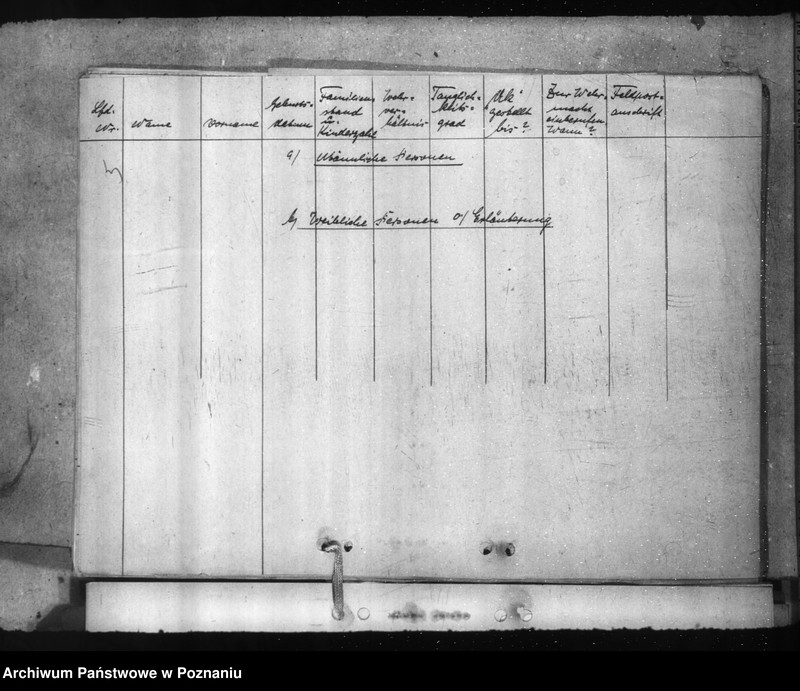 Lfd. Nr.
Name
Vorname
Geburts-
datum
Familien-
stand
u.
Kinderzahl
Wehr-
ver-
hältnis
Tauglich-
keits-
grad
"Uk"
gestellt
bis?
Zur Wehr-
macht
einberufen
Wann?
Feldpost-
anschrift
a/ Männliche Personen
b/ Weibliche Personen o/ Erläuterung
Archiwum Państwowe w Poznaniu